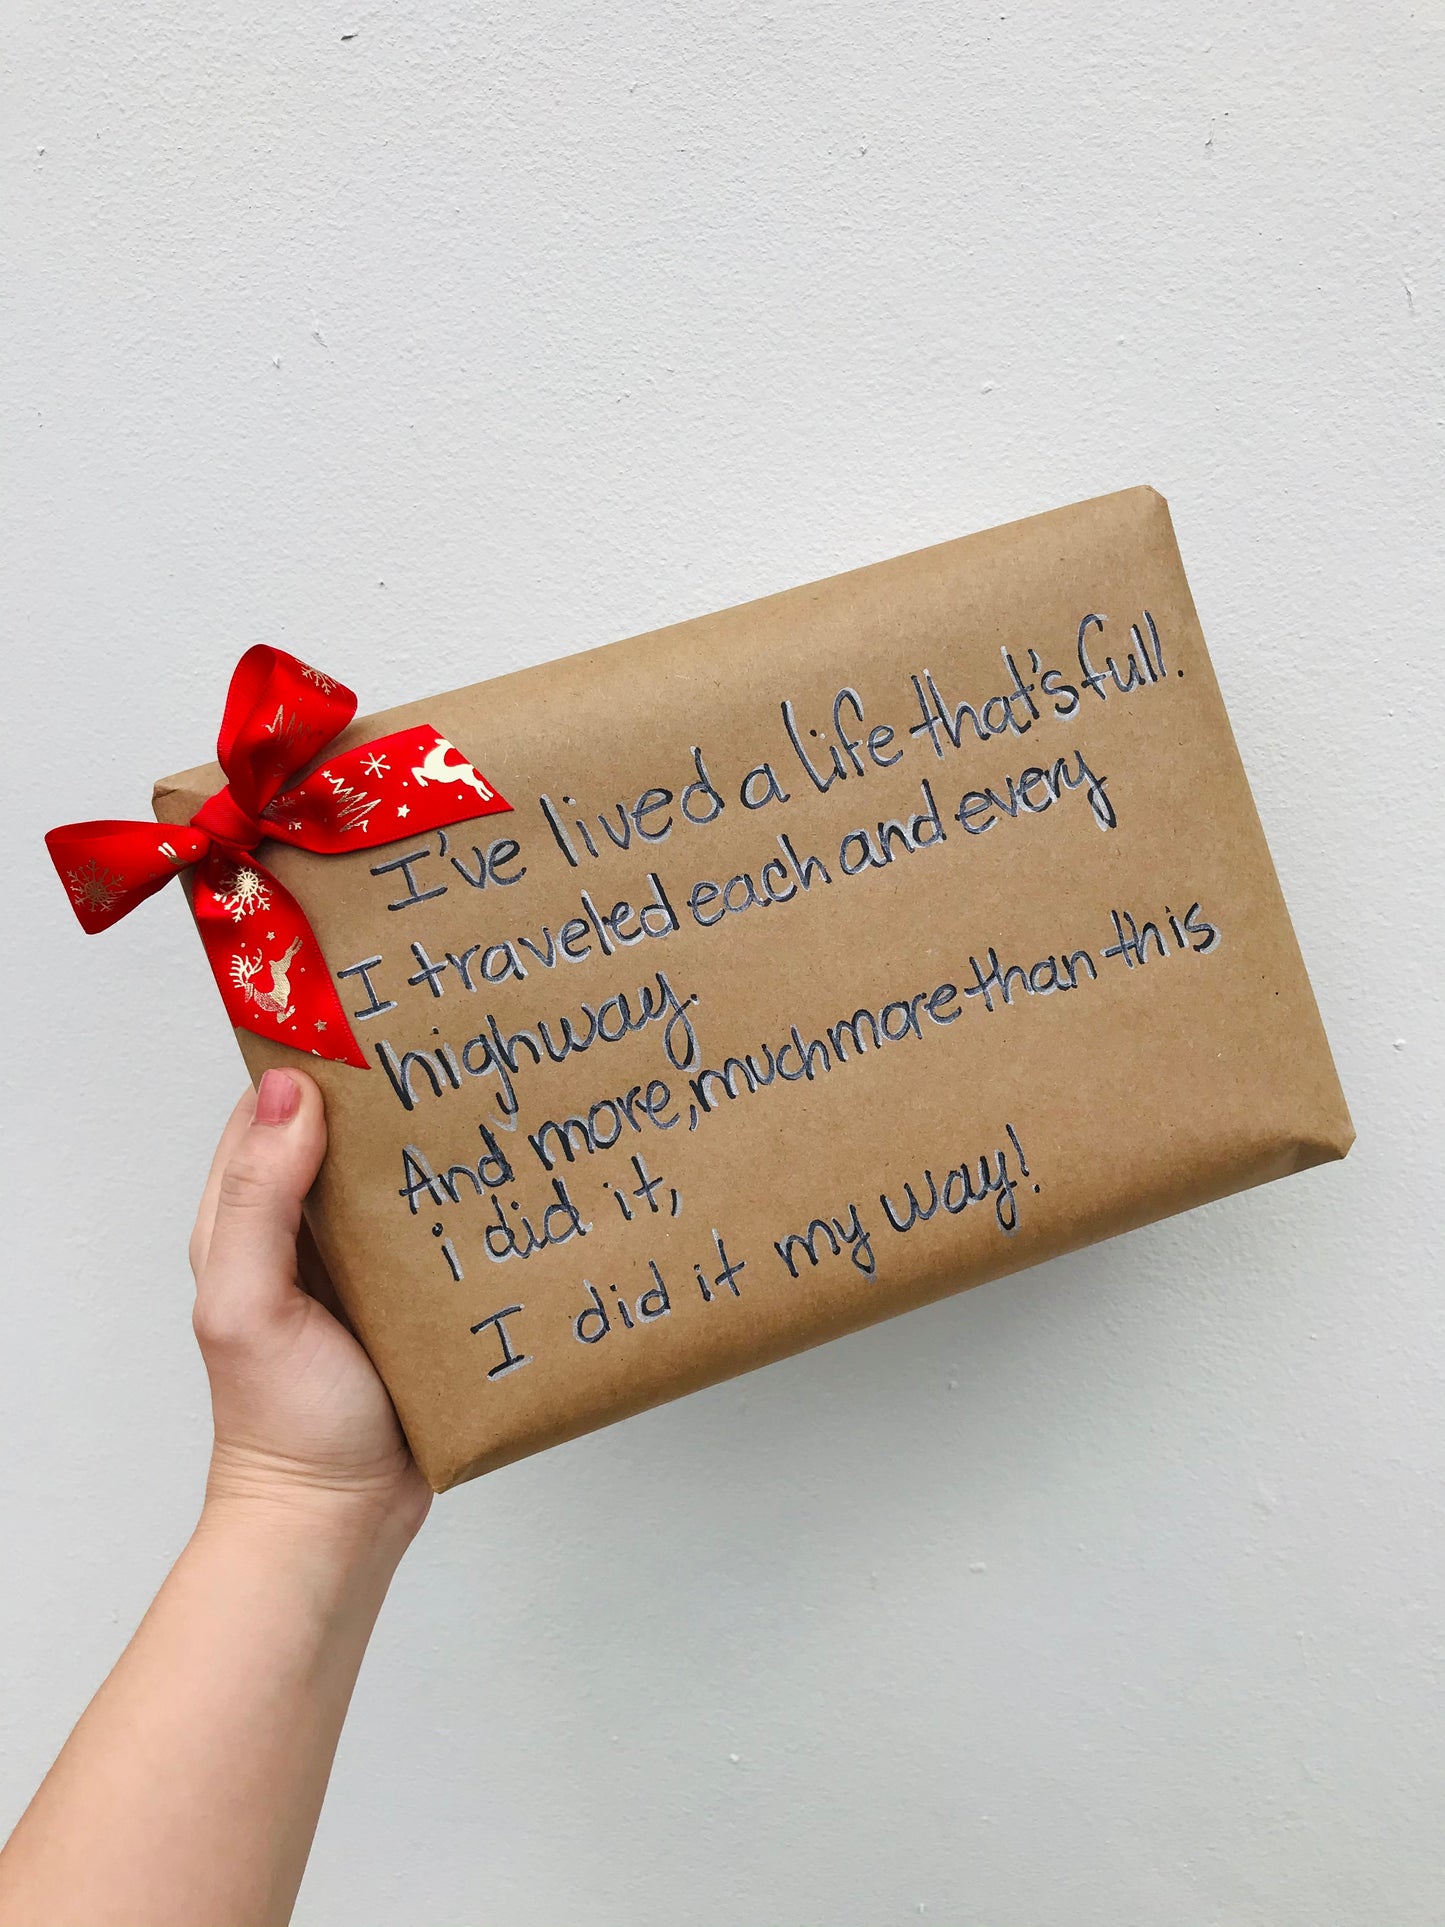 I've lived a life that's full.
I traveled each and every
highway.
And more, much more than this
i did it,
I did it my way!